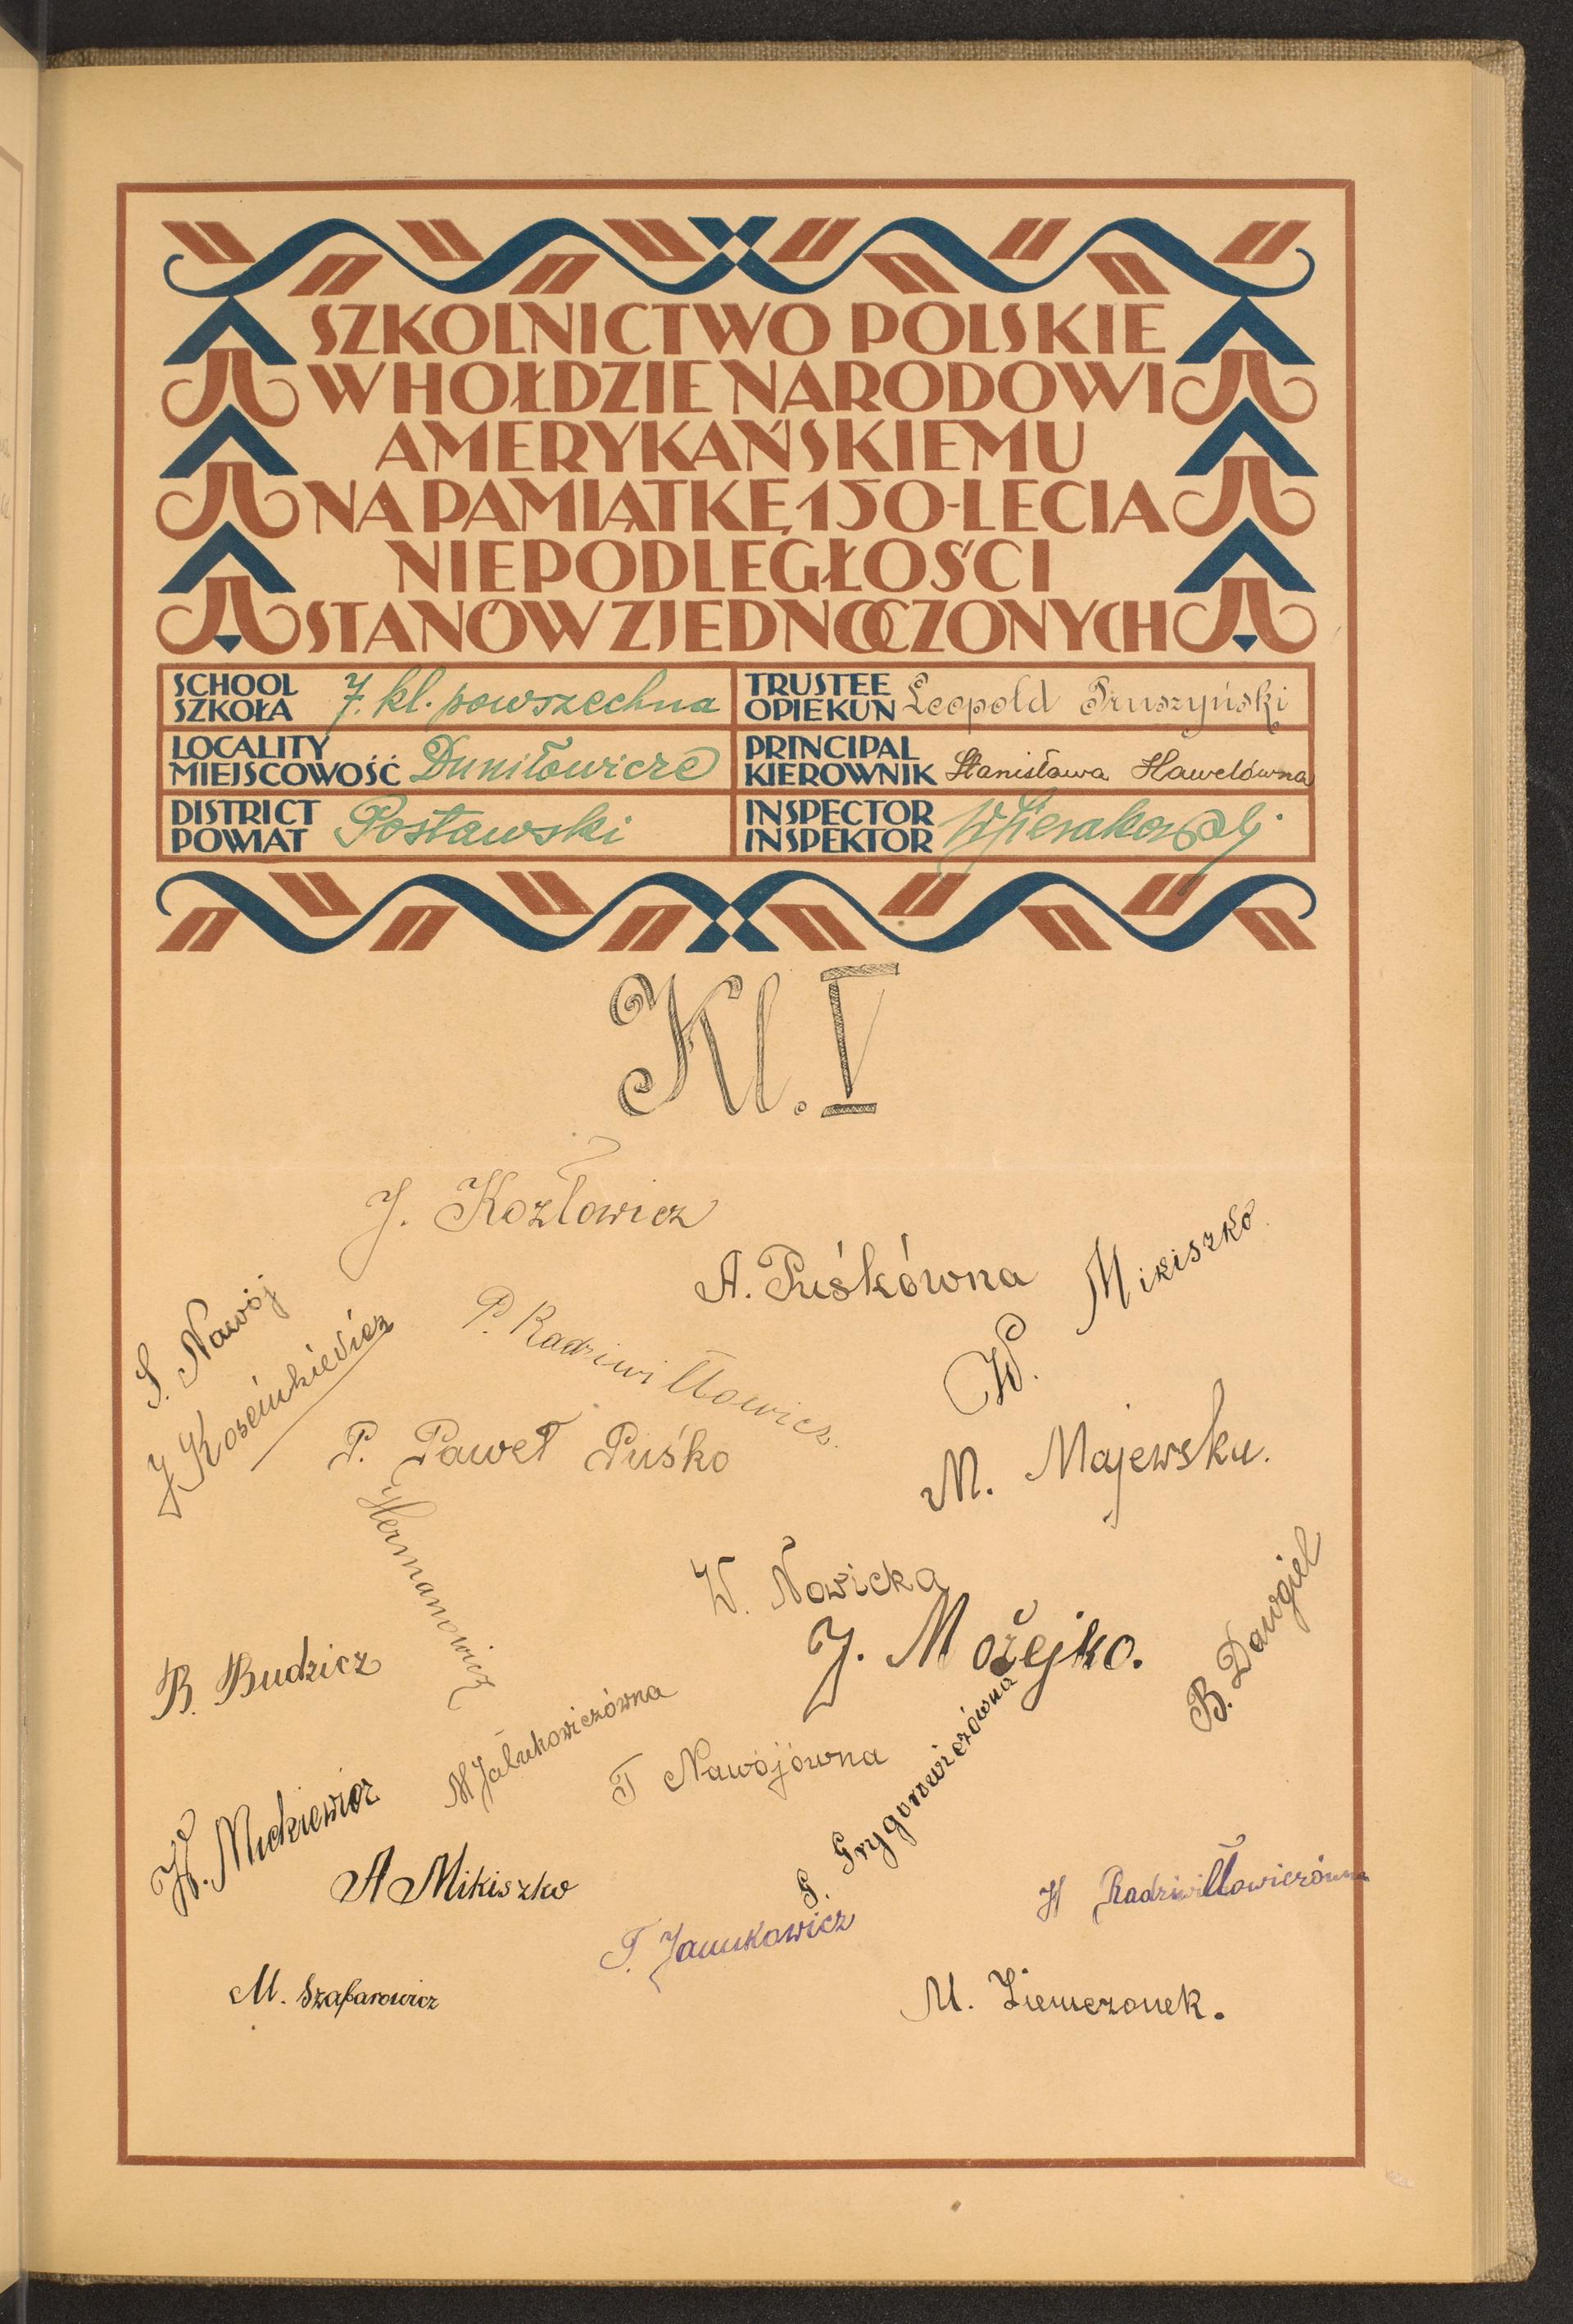 SZKOLNICTWO POLSKIE
W HOŁDZIE NARODOWI
AMERYKAŃSKIEMU
NA PAMIĄTKĘ 150-LECIA
NIEPODLEGŁOŚCI
STANÓW ZJEDNOCZONYCH
SCHOOL SZKOŁA 7. kl. powszechna
TRUSTEE OPIEKUN Leopold Pruszyński
LOCALITY MIEJSCOWOŚĆ Duniłowicze
PRINCIPAL KIEROWNIK Stanisława Hawelówna
DISTRICT POWIAT Postawski
INSPECTOR INSPEKTOR
Kl. V
J. Kozłowicz
A. Puśkówna
W. Mikiszko
S. Nawój
P. Radziwiłłowicz
P. Paweł Puśko
M. Majewsku.
Hermanowicz
W. Nowicka
J. Możejko.
B. Dawgiel
B. Budzicz
M Jałukowiczówna
T Nawojówna
G. Grygorowiczówna
W. Mickiewicz
A Mikiszko
H Radziwiłłowiczówna
T. Janukowicz
M. Szafarowicz
M. Ziemczonek.